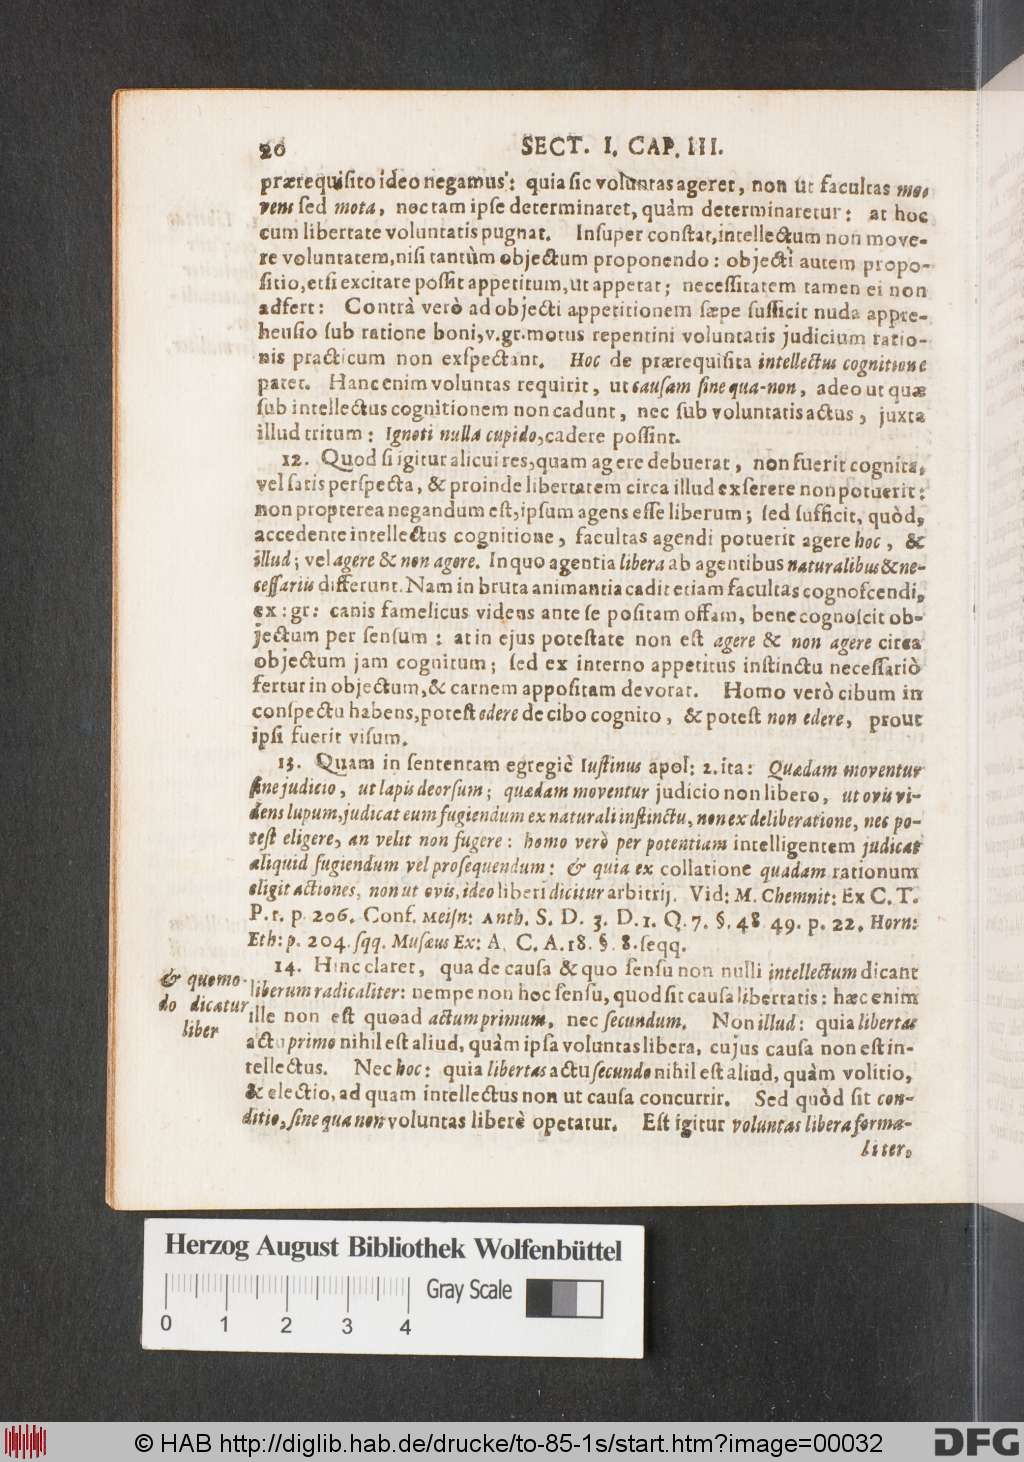 20 SECT. I. CAP. III.
prærequisito ideo negamus: quia sic voluntas ageret, non ut facultas mo-
vens sed mota, nec tam ipse determinaret, quàm determinaretur: at hoc
cum libertate voluntatis pugnat. Insuper constat, intellectum non move-
re voluntatem, nisi tantùm objectum proponendo: objecti autem propo-
sitio, etsi excitare possit appetitum, ut appetat; necessitatem tamen ei non
adfert: Contrà verò ad objecti appetitionem sæpe sufficit nuda appre-
hensio sub ratione boni, v. gr. motus repentini voluntatis judicium ratio-
nis practicum non exspectant. Hoc de prærequisita intellectus cognitione
patet. Hanc enim voluntas requirit, ut causam sine qua-non, adeo ut quæ
sub intellectus cognitionem non cadunt, nec sub voluntatis actus, juxta
illud tritum: Ignoti nulla cupido, cadere possint.
12. Quod si igitur alicui res, quam agere debuerat, non fuerit cognita,
vel satis perspecta, & proinde libertatem circa illud exserere non potuerit:
non propterea negandum est, ipsum agens esse liberum; sed sufficit, quòd,
accedente intellectus cognitione, facultas agendi potuerit agere hoc, &
illud; vel agere & non agere. In quo agentia libera ab agentibus naturalibus & ne-
cessariis differunt. Nam in bruta animantia cadit etiam facultas cognoscendi,
ex: gr: canis famelicus videns ante se positam offam, bene cognoscit ob-
jectum per sensum: at in ejus potestate non est agere & non agere circa
objectum jam cognitum; sed ex interno appetitus instinctu necessariò
fertur in objectum, & carnem appositam devorat. Homo verò cibum in
conspectu habens, potest edere de cibo cognito, & potest non edere, prout
ipsi fuerit visum.
13. Quam in sententam egregiè Iustinus apol: 2. ita: Quædam moventur
sine judicio, ut lapis deorsum; quædam moventur judicio non libero, ut ovis vi-
dens lupum, judicat eum fugiendum ex naturali instinctu, non ex deliberatione, nec po-
test eligere, an velit non fugere: homo verò per potentiam intelligentem judicat
aliquid fugiendum vel prosequendum: & quia ex collatione quadam rationum
eligit actiones, non ut ovis, ideo liberi dicitur arbitrij. Vid: M. Chemnit: Ex C. T.
P. 1. p. 206. Conf. Meisn: Anth. S. D. 3. D. 1. Q. 7. §. 48. 49. p. 22. Horn:
Eth: p. 204. sqq. Musæus Ex: A. C. A. 18. §. 8. seqq.
14. Hinc claret, qua de causa & quo sensu non nulli intellectum dicant
& quomo-
do dicatur
liber
liberum radicaliter: nempe non hoc sensu, quod sit causa libertatis: hæc enim
ille non est quoad actum primum, nec secundum. Non illud: quia libertas
actu primo nihil est aliud, quàm ipsa voluntas libera, cujus causa non est in-
tellectus. Nec hoc: quia libertas actu secundo nihil est aliud, quàm volitio,
& electio, ad quam intellectus non ut causa concurrit. Sed quòd sit con-
ditio, sine qua non voluntas liberè operatur. Est igitur voluntas libera forma-
liter.
Herzog August Bibliothek Wolfenbüttel
Gray Scale
0 1 2 3 4
© HAB http://diglib.hab.de/drucke/to-85-1s/start.htm?image=00032
DFG